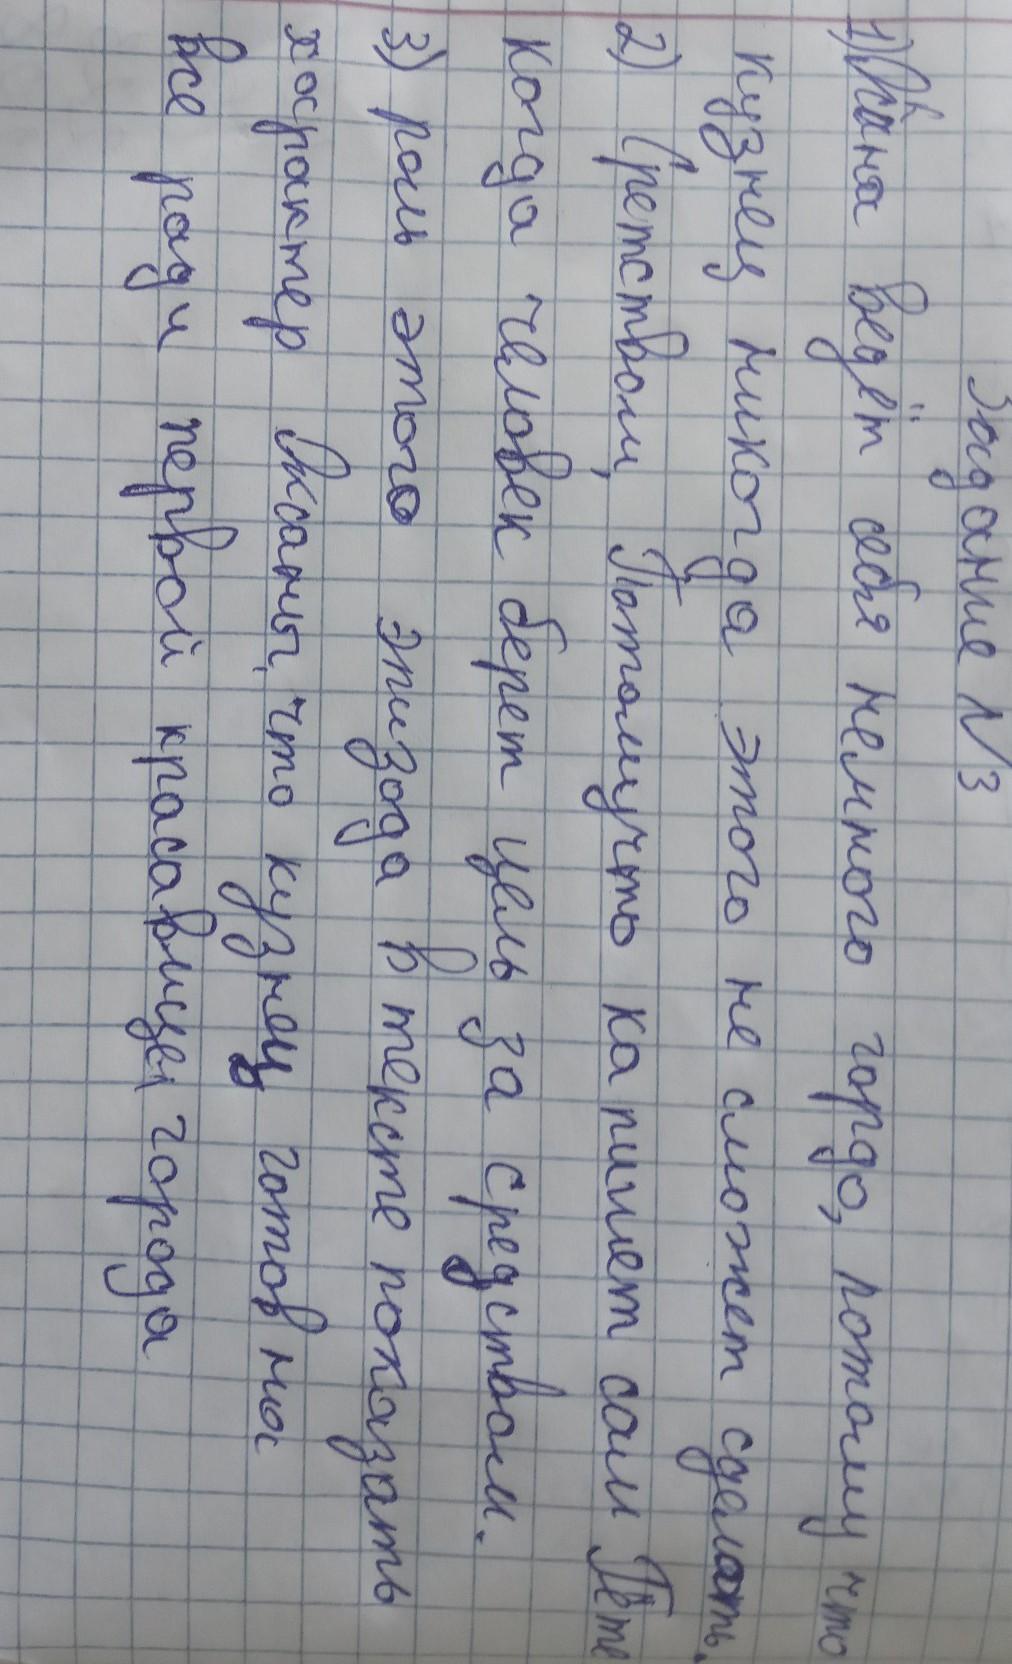 Задание N3
1) Оксана ведёт себя немного гордо, потому что
кузнец никогда этого не сможет сделать.
2) Средством, Потомучто ка пишет сам Гёте
когда человек берет цель за средством.
3) роль этого эпизода в тексте показать
характер Оксаны, что кузнец готов на
все ради первой красавице города